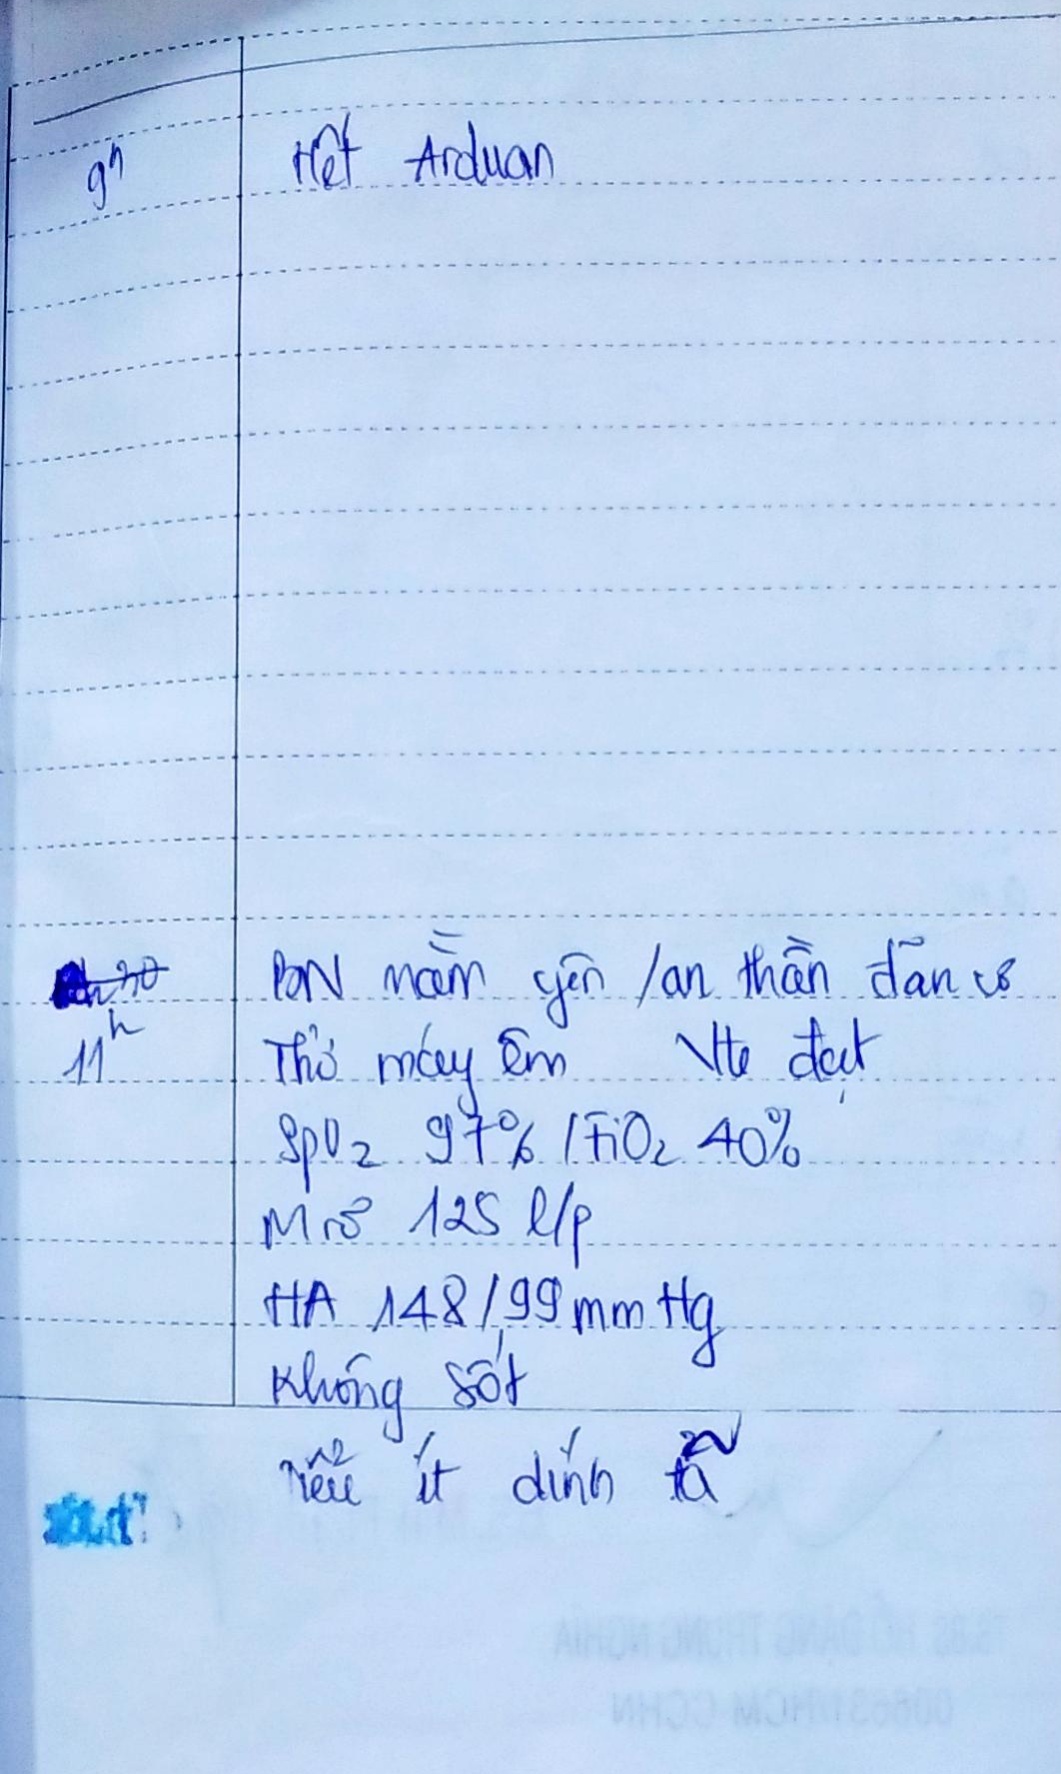 9h Hết Arduan
BN nằm yên / an thần dãn cơ
11h Thở máy êm Vte đạt
SpO2 97% / FiO2 40%
M rõ 125 l/p
HA 148/99 mmHg
Không sốt
Tiểu ít dính tã
BS. HỒ ĐẶNG TRUNG NGHĨA
HCM-CCHN